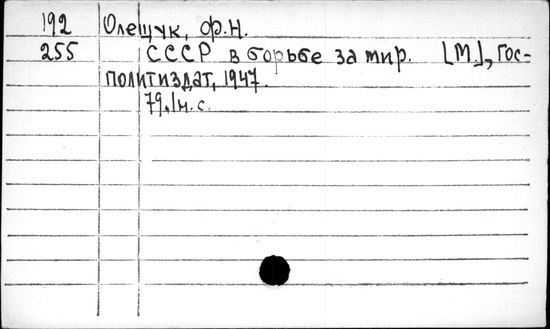 192 Олещук, Ф.Н.
255 СССР в борьбе за мир. [М], Гос-
политиздат, 1947.
79,1н.с.